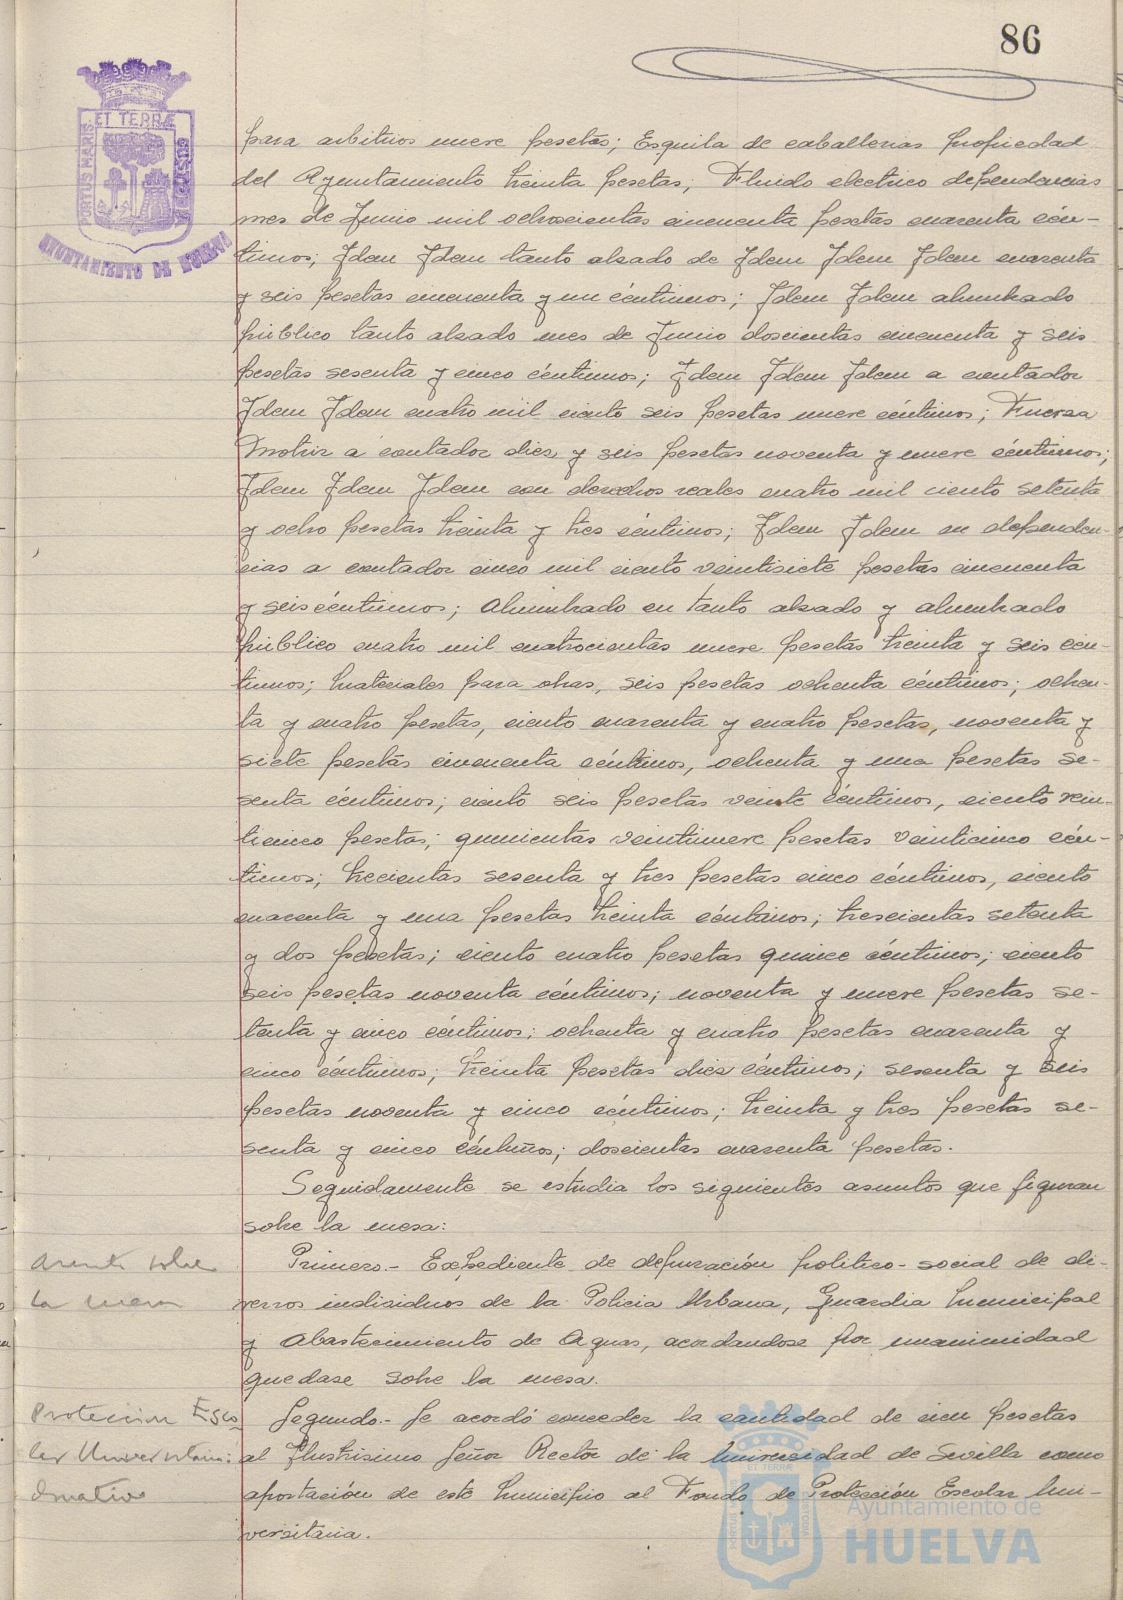 86
ET TERRÆ
PORTUS MARIS
CUSTODIA
AYUNTAMIENTO DE HUELVA
para arbitrios nueve pesetas; Esquila de caballerias propiedad
del Ayuntamiento treinta pesetas; Fluido electrico dependencias
mes de Junio mil ochocientas cincuenta pesetas cuarenta cén-
timos; Idem Idem tanto alzado de Idem Idem Idem cuarenta
y seis pesetas cincuenta y un céntimos; Idem Idem alumbrado
público tanto alzado mes de Junio doscientas cincuenta y seis
pesetas sesenta y cinco céntimos; Idem Idem Idem a contador
Idem Idem cuatro mil ciento seis pesetas nueve céntimos; Fuerza
Motriz a contador diez y seis pesetas noventa y nueve céntimos;
Idem Idem Idem con derechos reales cuatro mil ciento setenta
y ocho pesetas treinta y tres céntimos; Idem Idem en dependen-
cias a contador cinco mil ciento veintisiete pesetas cincuenta
y seis céntimos; Alumbrado en tanto alzado y alumbrado
público cuatro mil cuatrocientas nueve pesetas treinta y seis cén-
timos; Materiales para obras, seis pesetas ochenta céntimos; ochen-
ta y cuatro pesetas, ciento cuarenta y cuatro pesetas, noventa y
siete pesetas cincuenta céntimos, ochenta y una pesetas se-
senta céntimos; ciento seis pesetas veinte céntimos, ciento vein-
ticinco pesetas; quinientas veintinueve pesetas veinticinco cén-
timos; trecientas sesenta y tres pesetas cinco céntimos, ciento
cuarenta y una pesetas treinta céntimos; trescientas setenta
y dos pesetas; ciento cuatro pesetas quince céntimos; ciento
seis pesetas noventa céntimos; noventa y nueve pesetas se-
tenta y cinco céntimos; ochenta y cuatro pesetas cuarenta y
cinco céntimos; treinta pesetas diez céntimos; sesenta y seis
pesetas noventa y cinco céntimos; treinta y tres pesetas se-
senta y cinco céntimos; doscientas cuarenta pesetas.
Seguidamente se estudia los siguientes asuntos que figuran
sobre la mesa:
Asunto sobre
la mesa
Primero.- Expediente de depuración politico-social de di-
versos individuos de la Policia Urbana, Guardia Municipal
y Abastecimiento de Aguas, acordandose por unanimidad
quedase sobre la mesa.
Protección Esco
lar Universitaria:
Donativo
Segundo.- Se acordó conceder la cantidad de cien pesetas
al Ilustrisimo Señor Rector de la Universidad de Sevilla como
aportación de este Municipio al Fondo de Protección Escolar Uni-
versitaria.
Ayuntamiento de
HUELVA